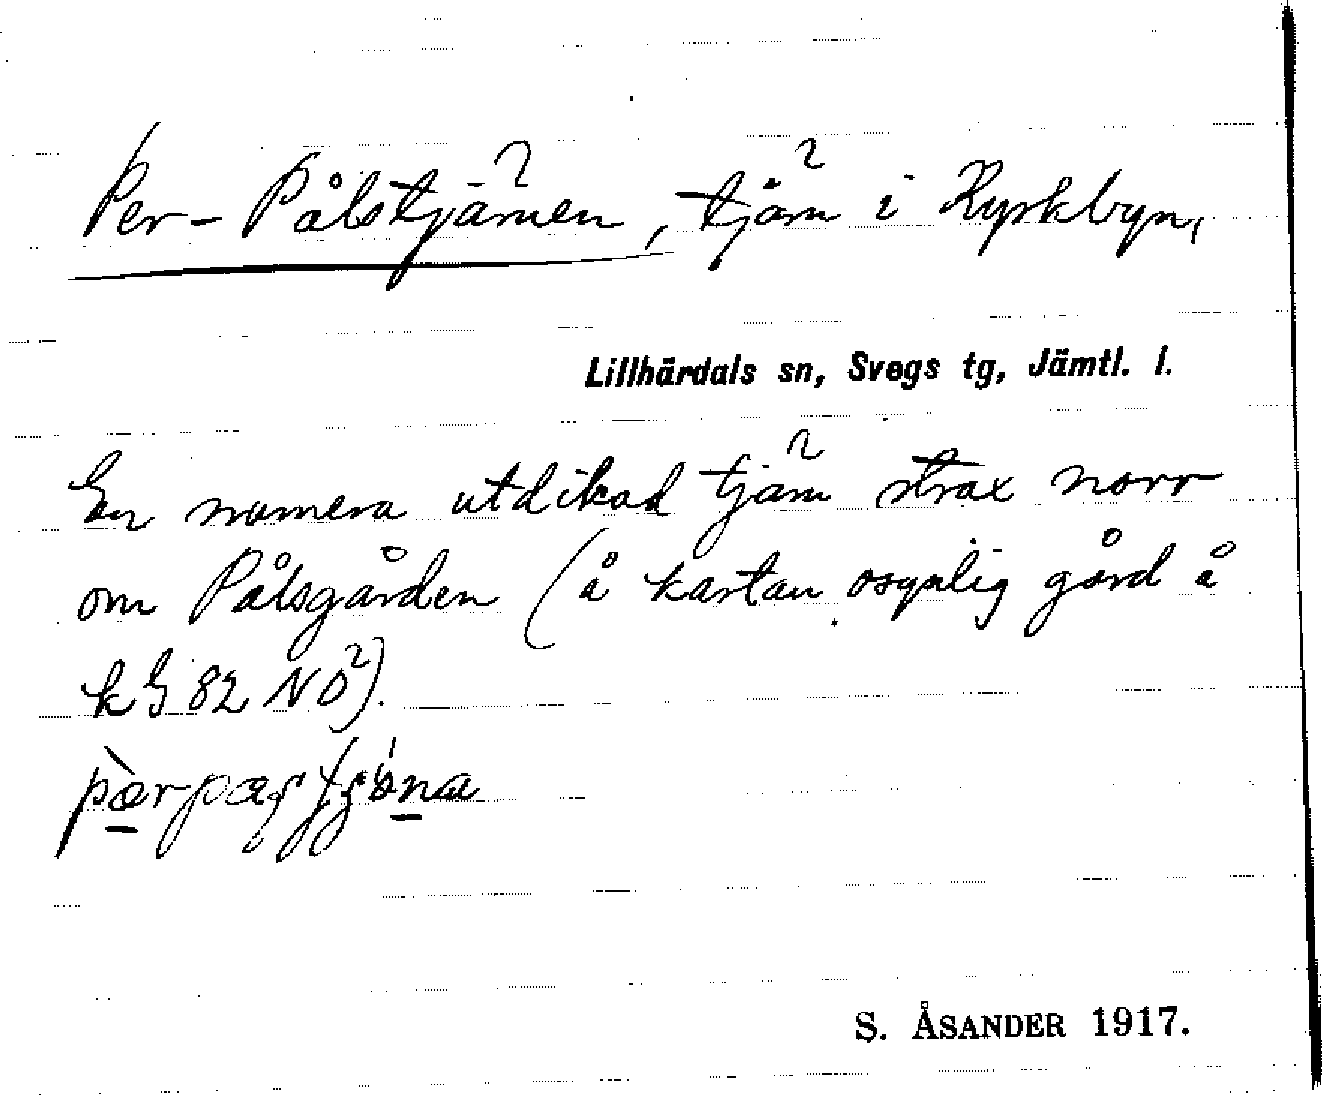 Per-Pålstjärnen, tjärn i Kyrkbyn,
Lillhärdals sn, Svegs tg, Jämtl. l.
En numera utdikad tjärn strax norr
om Pålsgården (å kartan osynlig gård å
k G 82 NO²).
S. ÅSANDER 1917.